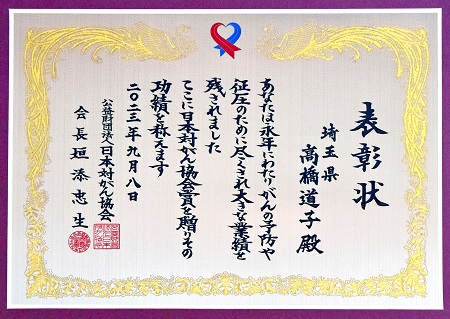 表彰状
埼玉県
高橋道子殿
あなたは永年にわたりがんの予防や
征圧のために尽くされ大きな業績を
残されました
ここに日本対がん協会賞を贈りその
功績を称えます
二〇二三年九月八日
公益財団法人日本対がん協会
会長垣添忠生